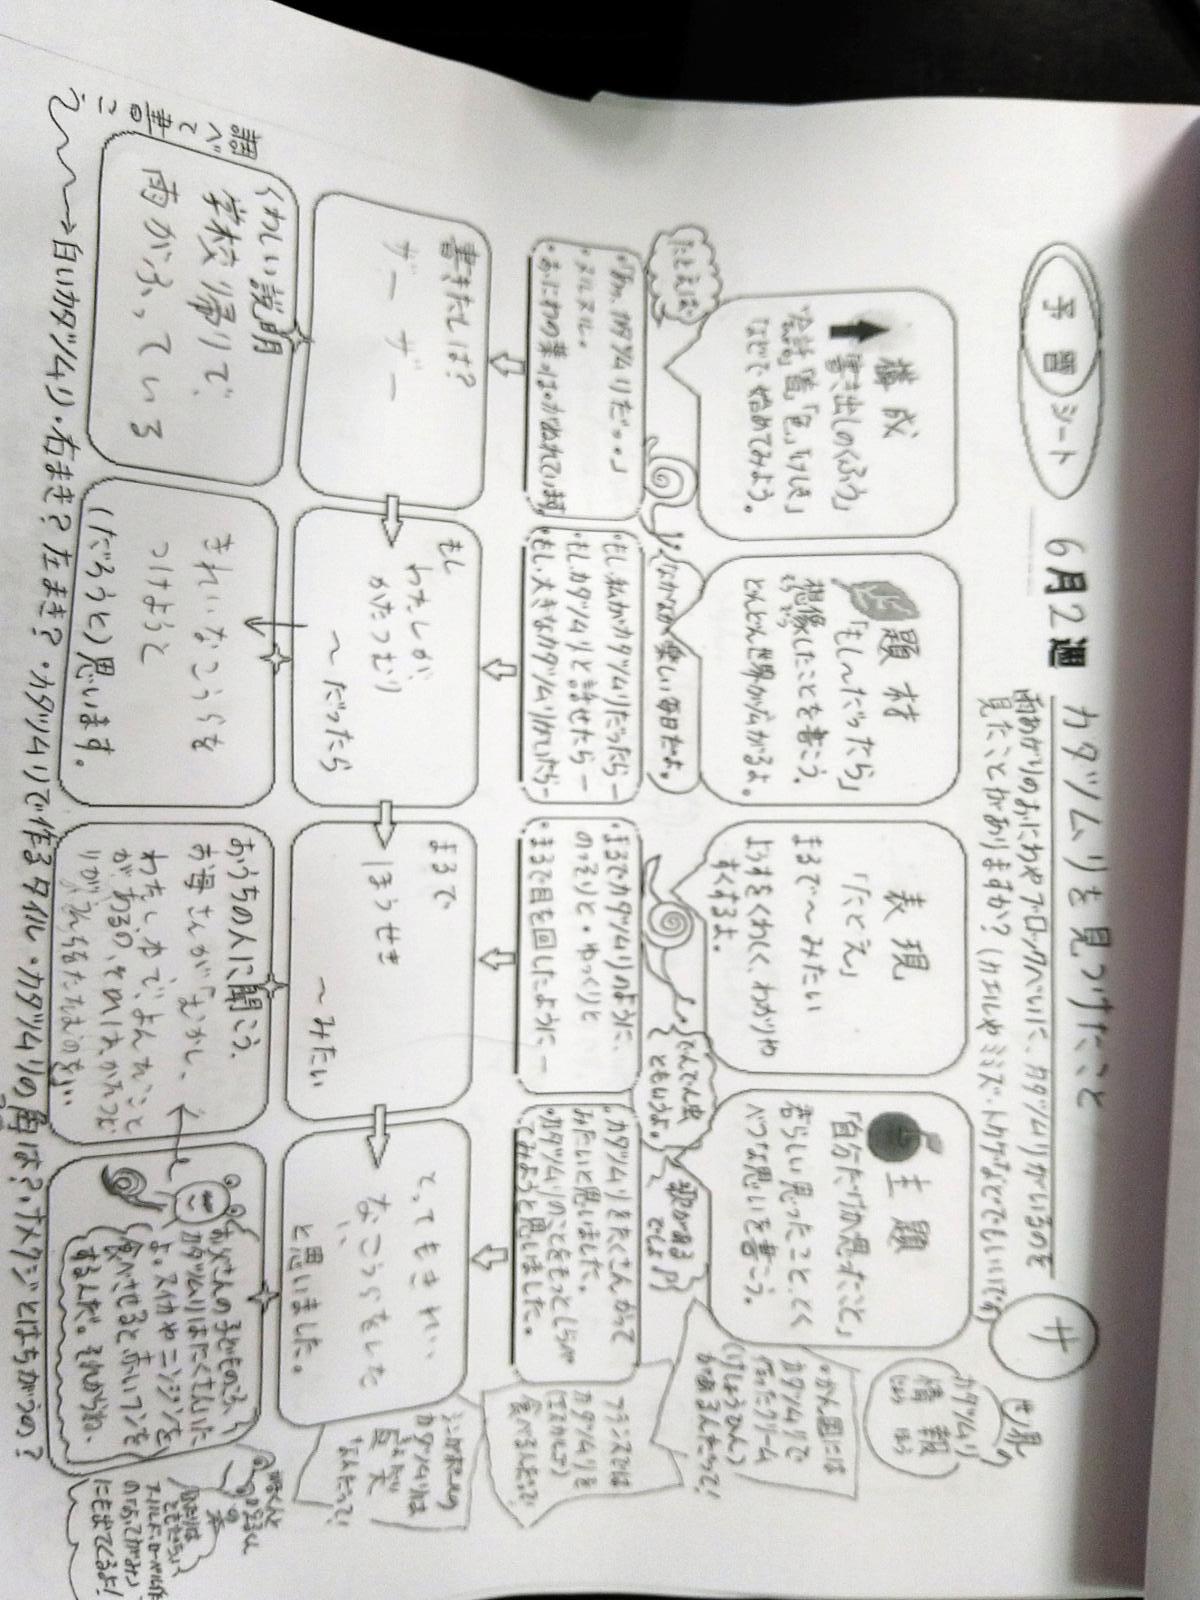 予習シート
6月2週
カタツムリを見つけたこと
サ
雨あがりのおにわやブロックべいに、カタツムリがいるのを
見たことがありますか？(カエルやミミズ・トカゲなどでもいいです)
構成
書き出しのくふう
「会話」「音」「色」「けしき」
などで始めてみよう。
題材
「もし〜だったら」
想像したことを書こう。
そうぞう
どんどん世界が広がるよ。
表現
「たとえ」
まるで〜みたい
ようすをくわしく、わかりや
すくするよ。
主題
「自分だけが思ったこと」
君らしい思ったこと、とく
べつな思いを書こう。
世界
カタツムリ
情報
じょうほう
たとえば
なかなか楽しい毎日だよ。
でんでん虫
ともいうよ。
歌がある
でしょ♪
かん国には
カタツムリで
作ったクリーム
(けしょうひん)
があるんだって！
・「あ、カタツムリだ。」
・ヌルヌル。
・おにわの葉っぱがぬれています。
・もし、私がカタツムリだったらー
・もし、カタツムリと話せたらー
・もし、大きなカタツムリがいたらー
・まるでカタツムリのように、
のっそりと・ゆっくりと
・まるで目を回したようにー
・カタツムリをたくさんかって
みたいと思いました。
・カタツムリのことをもっとしらべ
てみようと思いました。
フランスでは
カタツムリを
(エスカルゴ)
食べるんだって！
書きだしは？
ザーザー
もし
わたしが、
かたつむり
〜だったら
まるで
ほうせき
〜みたい
とってもきれい
なこうらをした
と思いました。
カタツムリは
なんだって！
くわしい説明
学校帰りで、
雨がふっている
きれいなこうらを
つけようと
(だろうと)思います。
おうちの人に聞こう。
お母さんが「むかし、
お父さんの子どものころ
カタツムリはたくさんいた
よ。スイカやニンジンを
食べさせると赤いフンを
するんだ。それからね、
調べて書こう
→白いカタツムリ・右まき？左まき？・カタツムリで作るタイル・カタツムリの角は？・ナメクジとはちがうの？